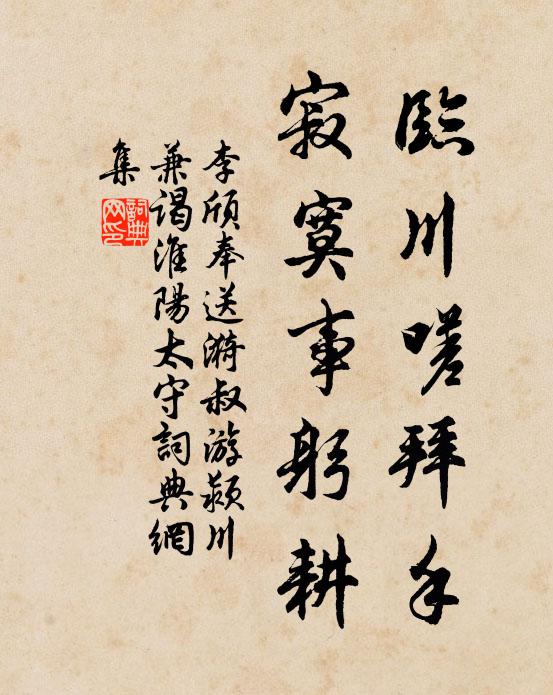 臨川嗟拜手
寂寞事躬耕
李頎奉送漪叔游潁川
兼謁淮陽太守詞典網
集
詞典網印